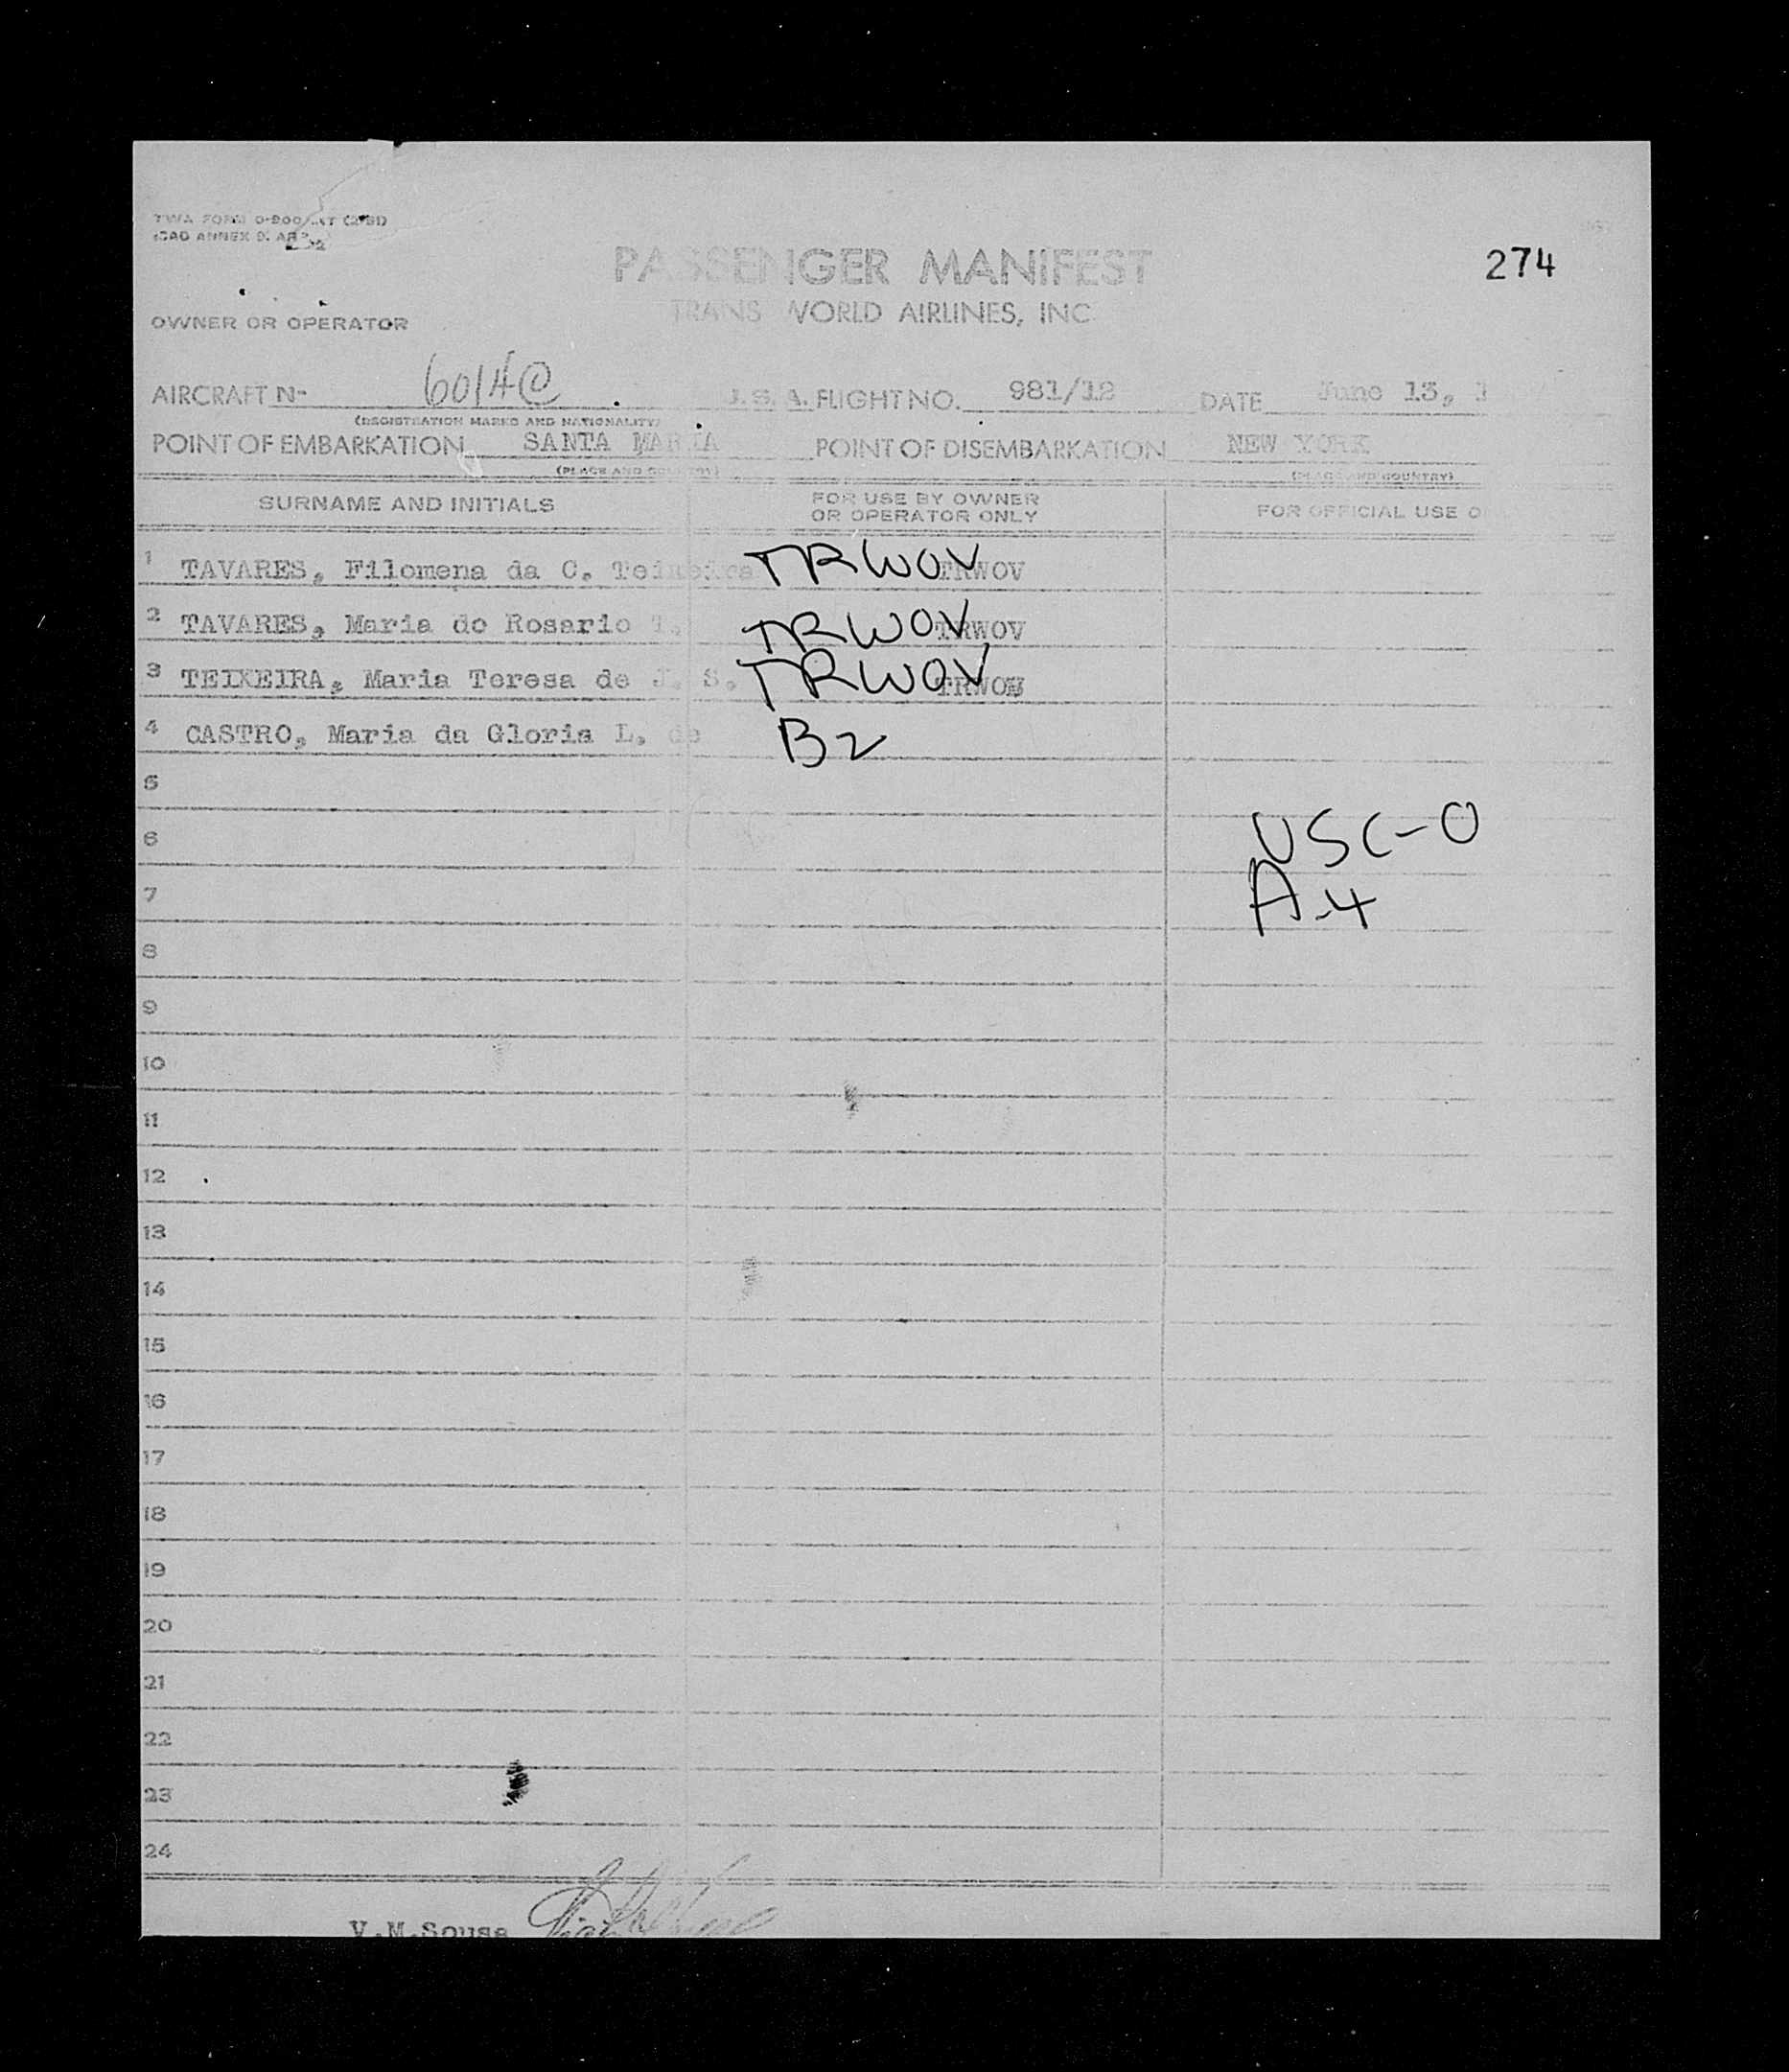 TWA FORM
ICAO ANNEX 9.
274
PASSENGER MANIFEST
TRANS WORLD AIRLINES, INC
OWNER OR OPERATOR
AIRCRAFT No 6014C U.S.A. FLIGHT NO. 981/12 DATE June 13,
(REGISTRATION MARKS AND NATIONALITY)
POINT OF EMBARKATION SANTA MARIA POINT OF DISEMBARKATION NEW YORK
(PLACE AND COUNTRY) (PLACE AND COUNTRY)
SURNAME AND INITIALS FOR USE BY OWNER OR OPERATOR ONLY FOR OFFICIAL USE O
1 TAVARES, Filomena da C. Teixeira TRWOV TRWOV
2 TAVARES, Maria do Rosario T. TRWOV TRWOV
3 TEIXEIRA, Maria Teresa de J. S. TRWOV TRWOV
4 CASTRO, Maria da Gloria L. de B2
5
6 USC-0
7 A-4
8
9
10
11
12
13
14
15
16
17
18
19
20
21
22
23
24
V.M.Sousa